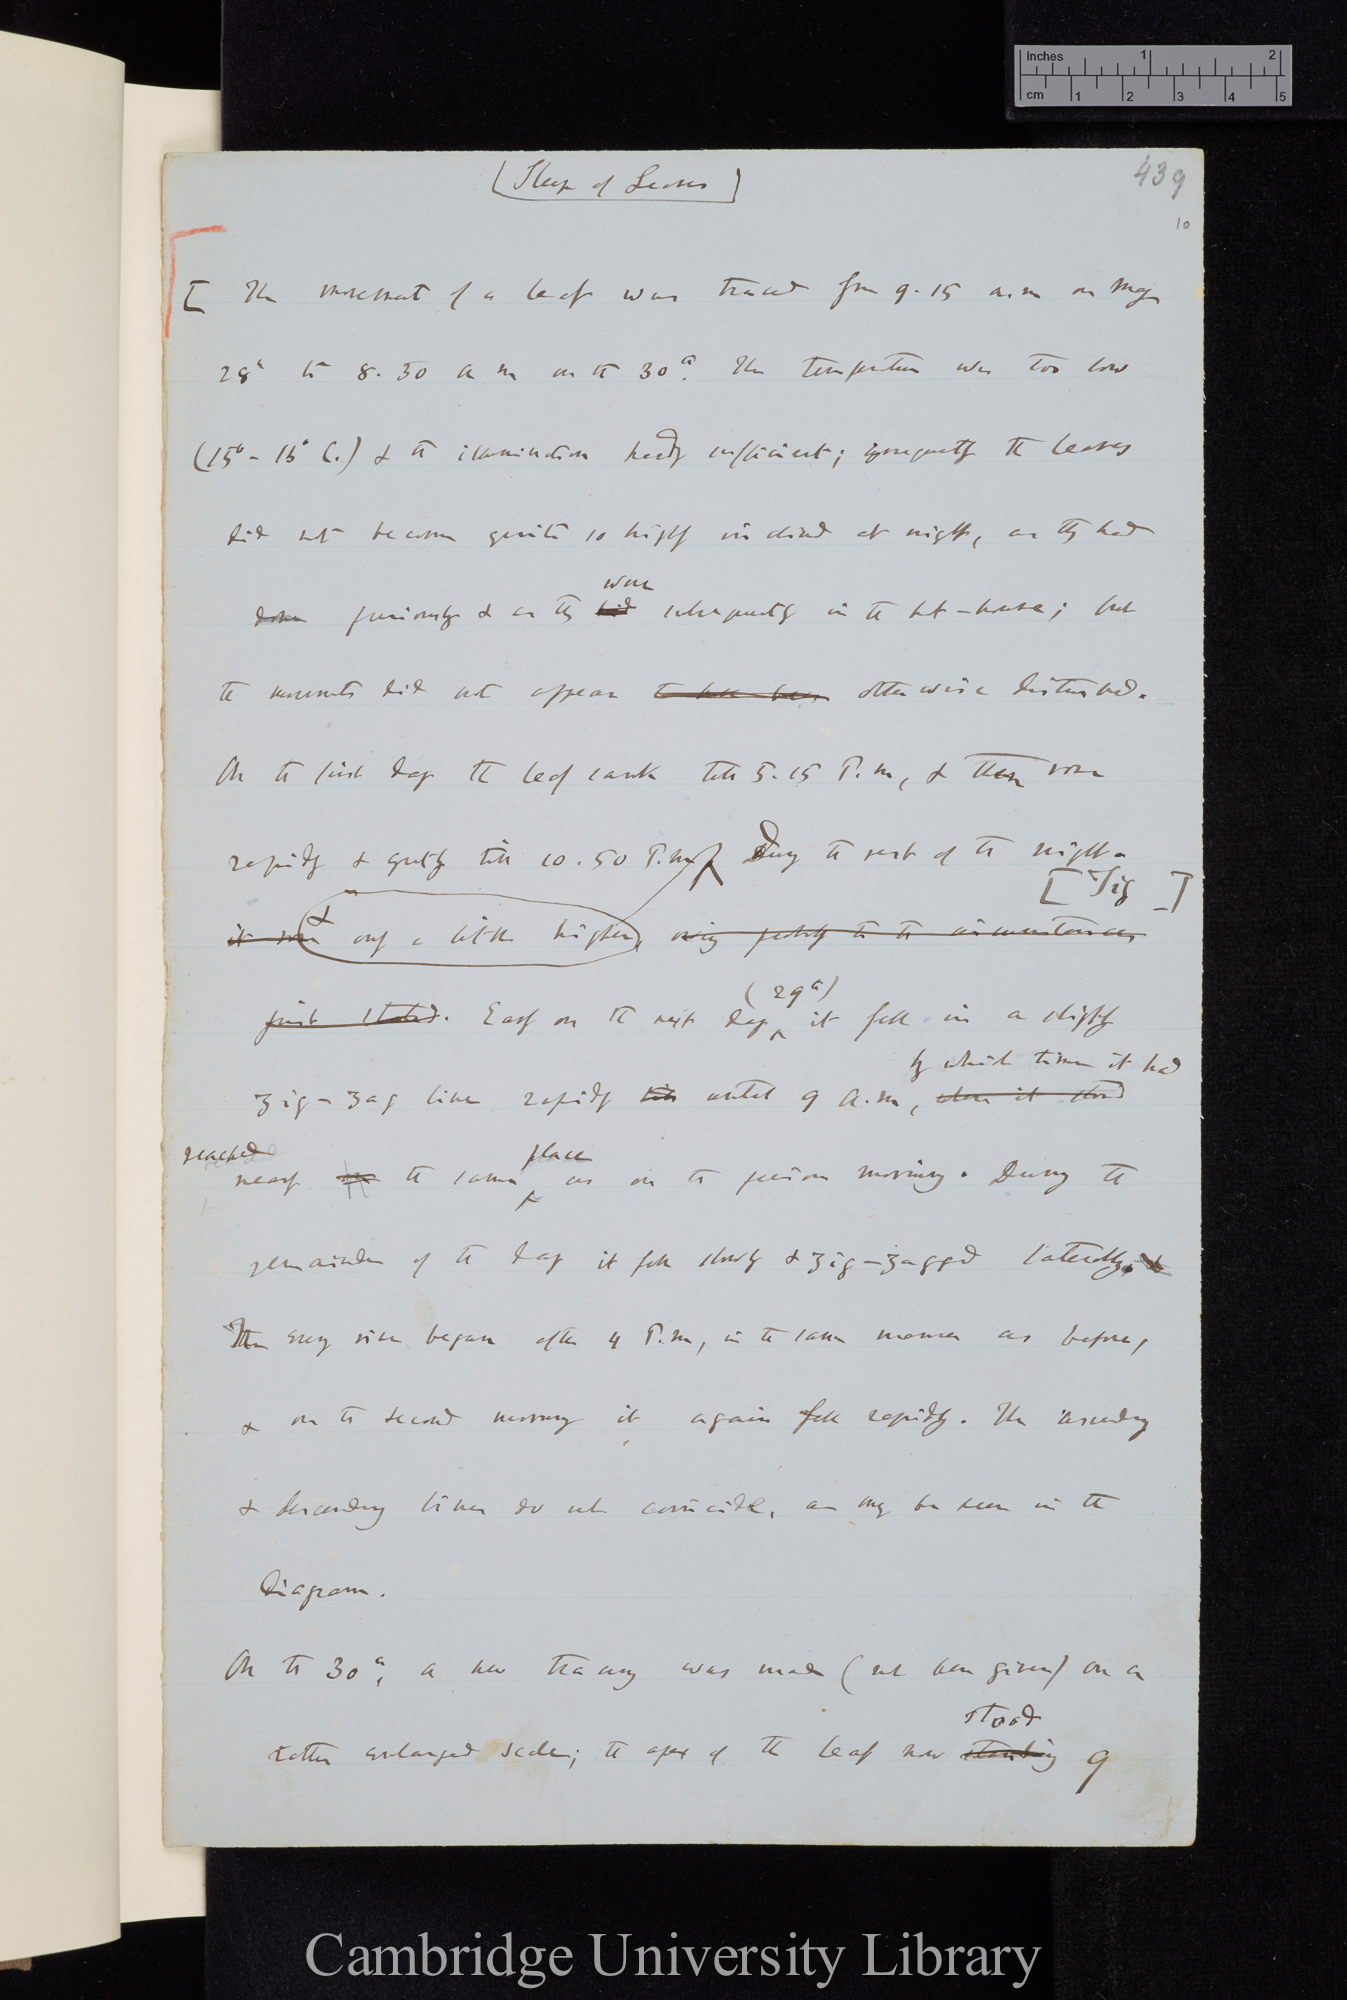 (Sleep of Leaves)
439
10
[ The movement of a leaf was traced from 9.15 a.m on May
28th to 8.30 a m on the 30th. The temperature was too low
(15° - 16° C.) & the illumination hardly sufficient; consequently the leaves
did not become quite so highly inclined at night, as they had
were
done previously & as they did subsequently in the hot-house; but
the movements did not appear to have been otherwise disturbed.
On the first day the leaf sank till 5.15 P.m, & then rose
rapidly & greatly till 10.50 P.m. During the rest of the night.
[ Fig ]
it rose & only a little higher, owing probably to the circumstances
just stated. Early on the next day (29th) it fell in a slightly
by which time it had
zig-zag line rapidly till until 9 a.m, when it stood
reached nearly the same place as on the previous morning. During the
remainder of the day it fell slowly & zig-zagged laterally. &
The evening rise began after 4 P.m, in the same manner as before,
& on the second morning it again fell rapidly. The ascending
& descending lines do not coincide, as may be seen in the
diagram.
On the 30th, a new tracing was made (not here given) on a
stood
rather enlarged scale; the apex of the leaf now standing 9
inches
1
2
cm
1
2
3
4
5
Cambridge University Library